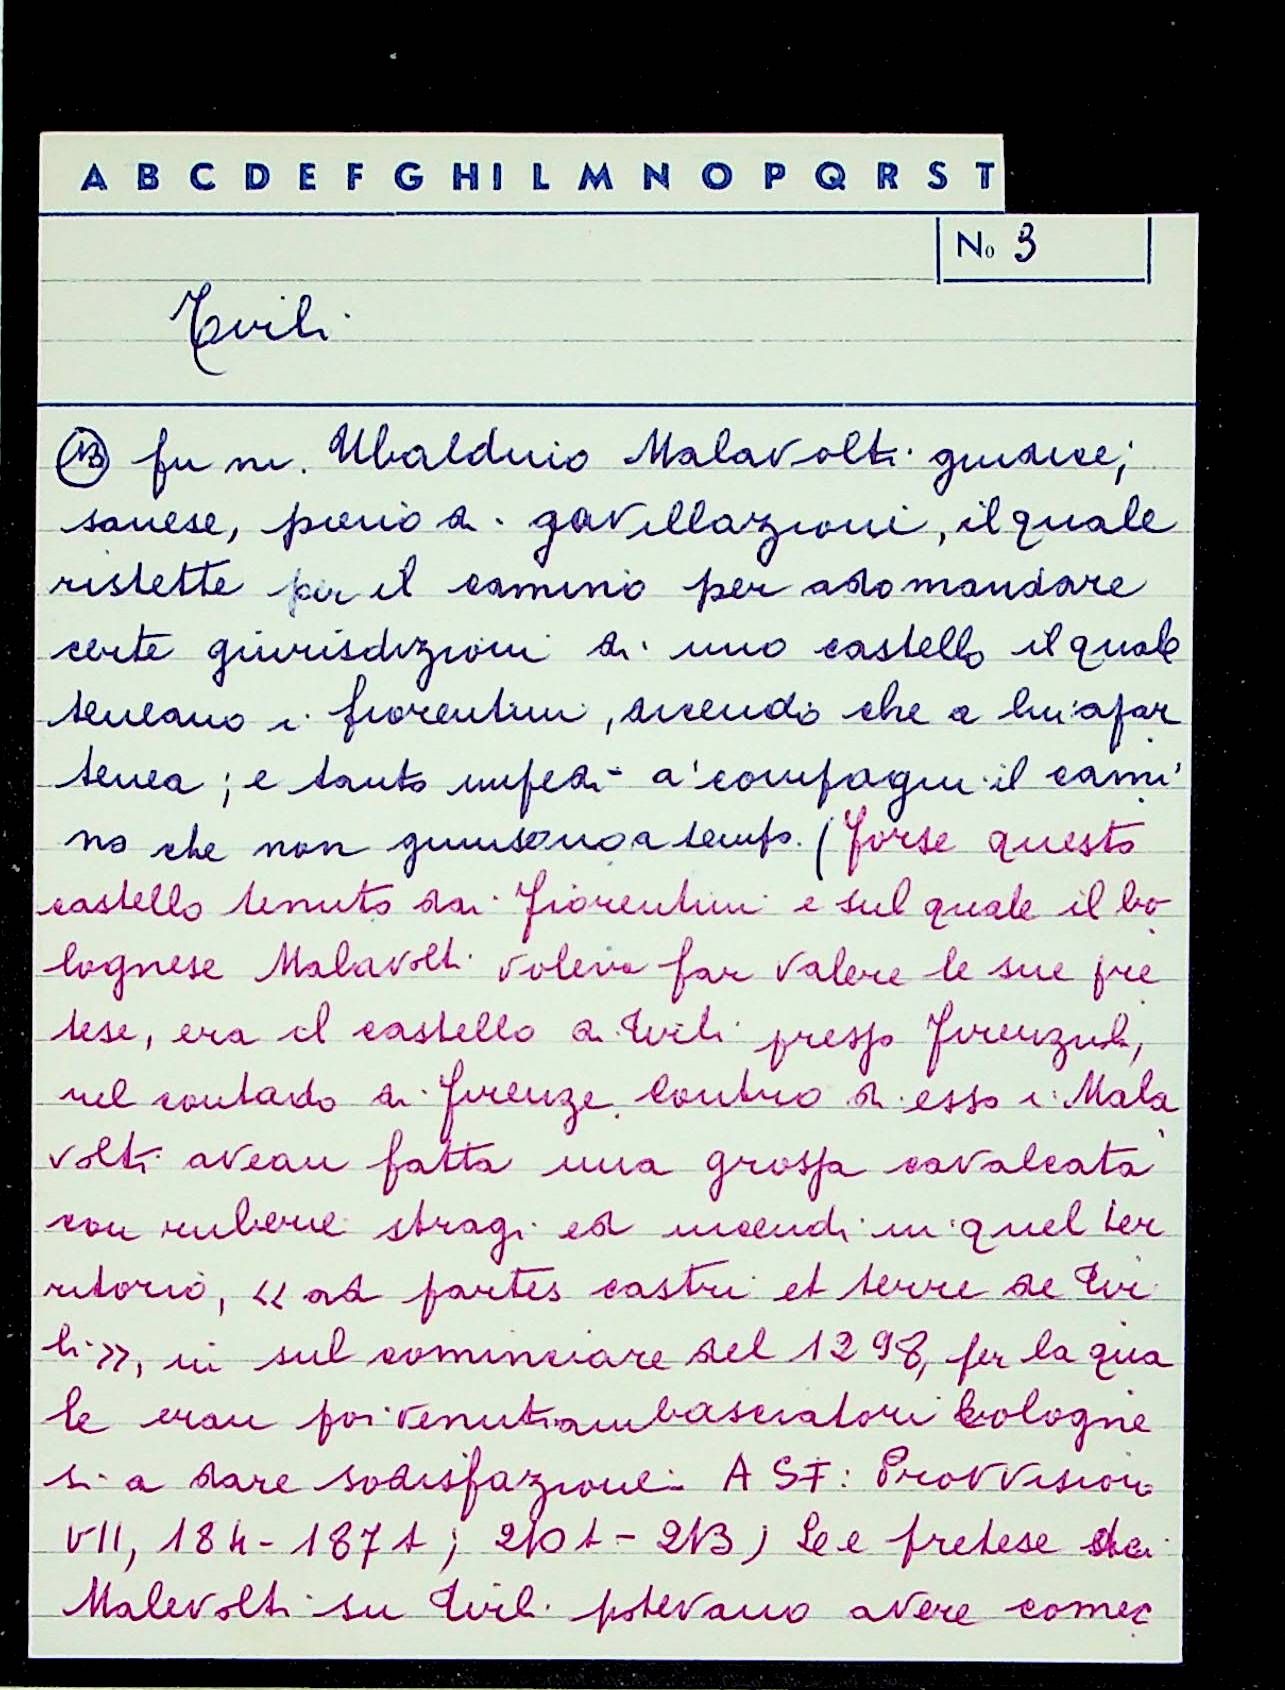 A B C D E F G H I L M N O P Q R S T
No 3
Tirli
(13) fu m. Ubaldino Malavolti giudice,
sanese, pieno di gavillazioni, il quale
ristette per il camino per adomandare
certe giurisdizioni di uno castello il quale
teneano i fiorentini, dicendo che a lui apar
tenea; e tanto impedì a' compagni il cami
no che non giunsono a tempo. (Forse questo
castello tenuto dai Fiorentini e sul quale il bo
lognese Malavolti voleva far valere le sue pre
tese, era il castello di Tirli presso Firenzuola,
nel contado di Firenze. Contro di esso i Mala
volti avean fatta una grossa cavalcata
con ruberie stragi ed incendi in quel ter
ritorio, << ad partes castri et terre de Tir
li >>, in sul cominciare del 1298, per la qua
le eran poi venuti ambasciatori bologne
si a dare sodisfazione: ASF: Provvisioni
VII, 184-187t; 210t-213) Le pretese dei
Malevolti su Tirli potevano avere come